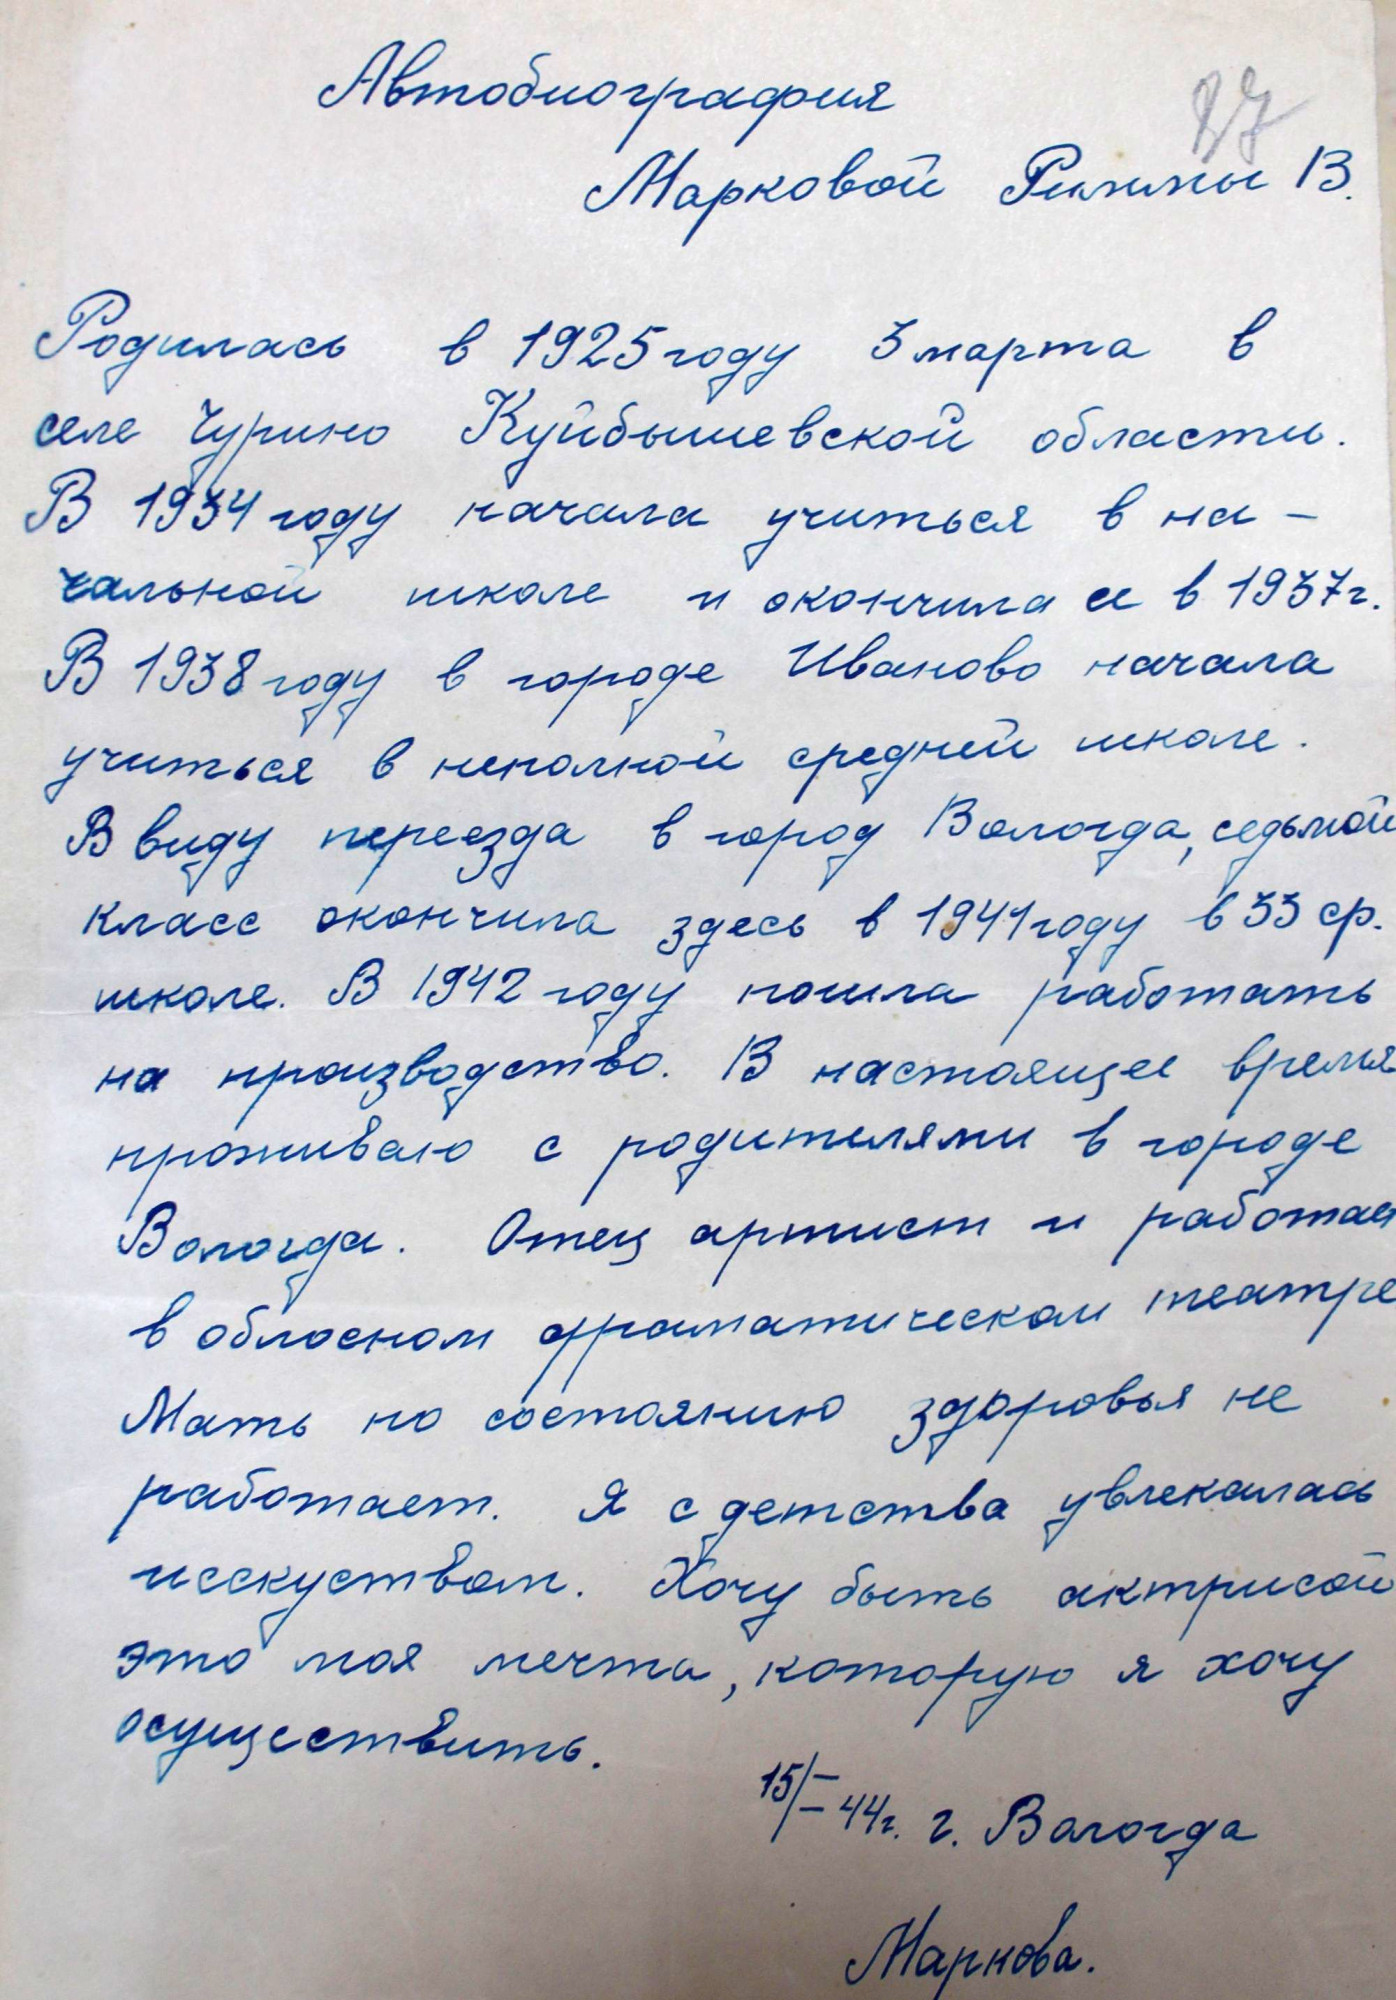 27
Автобиография
Марковой Риммы В.
Родилась в 1925 году 3 марта в
селе Чурино Куйбышевской области.
В 1934 году начала учиться в на-
чальной школе и окончила ее в 1937г.
В 1938 году в городе Иваново начала
учиться в неполной средней школе.
В виду переезда в город Вологда, седьмой
класс окончила здесь в 1941 году в 33 ср.
школе. В 1942 году пошла работать
на производство. В настоящее время
проживаю с родителями в городе
Вологда. Отец артист и работает
в обласном драматическом театре
Мать по состоянию здоровья не
работает. Я с детства увлекалась
исскуством. Хочу быть актрисой
это моя мечта, которую я хочу
осуществить.
15/I-44г. г. Вологда
Маркова.